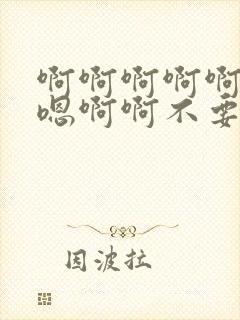 啊啊啊啊啊
嗯啊啊不要
因波拉